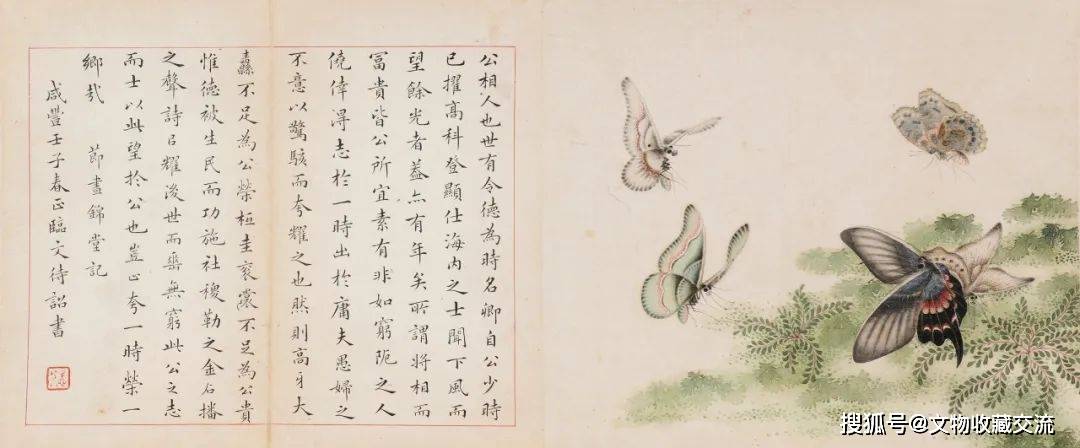 公相人也世有令德為時名卿自公少時
已擢高科登顯仕海內之士聞下風而
望餘光者葢亦有年矣所謂將相而
冨貴皆公所宜素有非如窮阨之人
僥倖淂志於一時出於庸夫愚婦之
不意以驚駭而夸耀之也然則高牙大
纛不足為公榮桓圭衮裳不足為公貴
惟德被生民而功施社稷勒之金石播
之聲詩㠯耀後世而垂無窮此公之志
而士以此望於公也豈止夸一時榮一
鄉哉 節晝錦堂記
咸豐壬子春正臨文待詔書
搜狐号@文物收藏交流